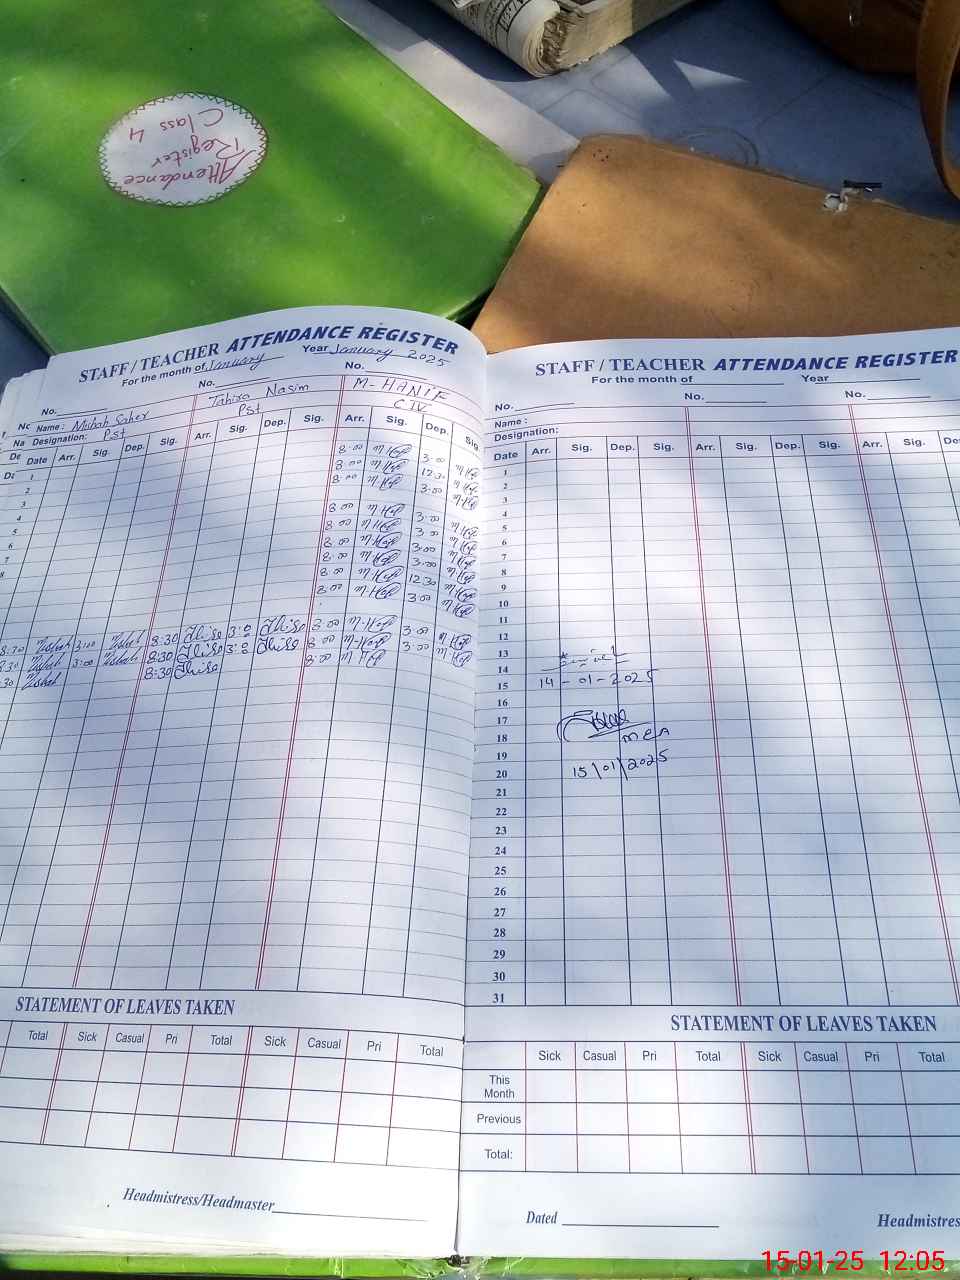 Attendance
Register
Class 4
STAFF / TEACHER ATTENDANCE REGISTER
For the month of January Year January 2025
No. No. No.
Name : Misbah Saher Tahira Nasim M-HANIF
Designation: Pst Pst CTV
Date Arr. Sig. Dep. Sig. Arr. Sig. Dep. Sig. Arr. Sig. Dep. Sig.
1 8:00 3:00
2 8:00 12:30
3 8:00 3:00
4
5 8:00 3:00
6 8:00 3:00
7 8:00 3:00
8 8:00 3:00
8:00 12:30
8:00 3:00
8:30 3:00 8:30 3:0 8:00 3:00
8:30 3:00 8:30 3:0 8:00 3:00
8:30 8:30 8:00
STATEMENT OF LEAVES TAKEN
Total Sick Casual Pri Total Sick Casual Pri Total
Headmistress/Headmaster
STAFF / TEACHER ATTENDANCE REGISTER
For the month of Year
No. No. No.
Name :
Designation:
Date Arr. Sig. Dep. Sig. Arr. Sig. Dep. Sig. Arr. Sig. De
1
2
3
4
5
6
7
8
9
10
11
12
13
14
15 14-01-2025
16
17
18 MEA
19
20 15/01/2025
21
22
23
24
25
26
27
28
29
30
31
STATEMENT OF LEAVES TAKEN
Sick Casual Pri Total Sick Casual Pri Total
This Month
Previous
Total:
Dated Headmistres
15-01-25 12:05